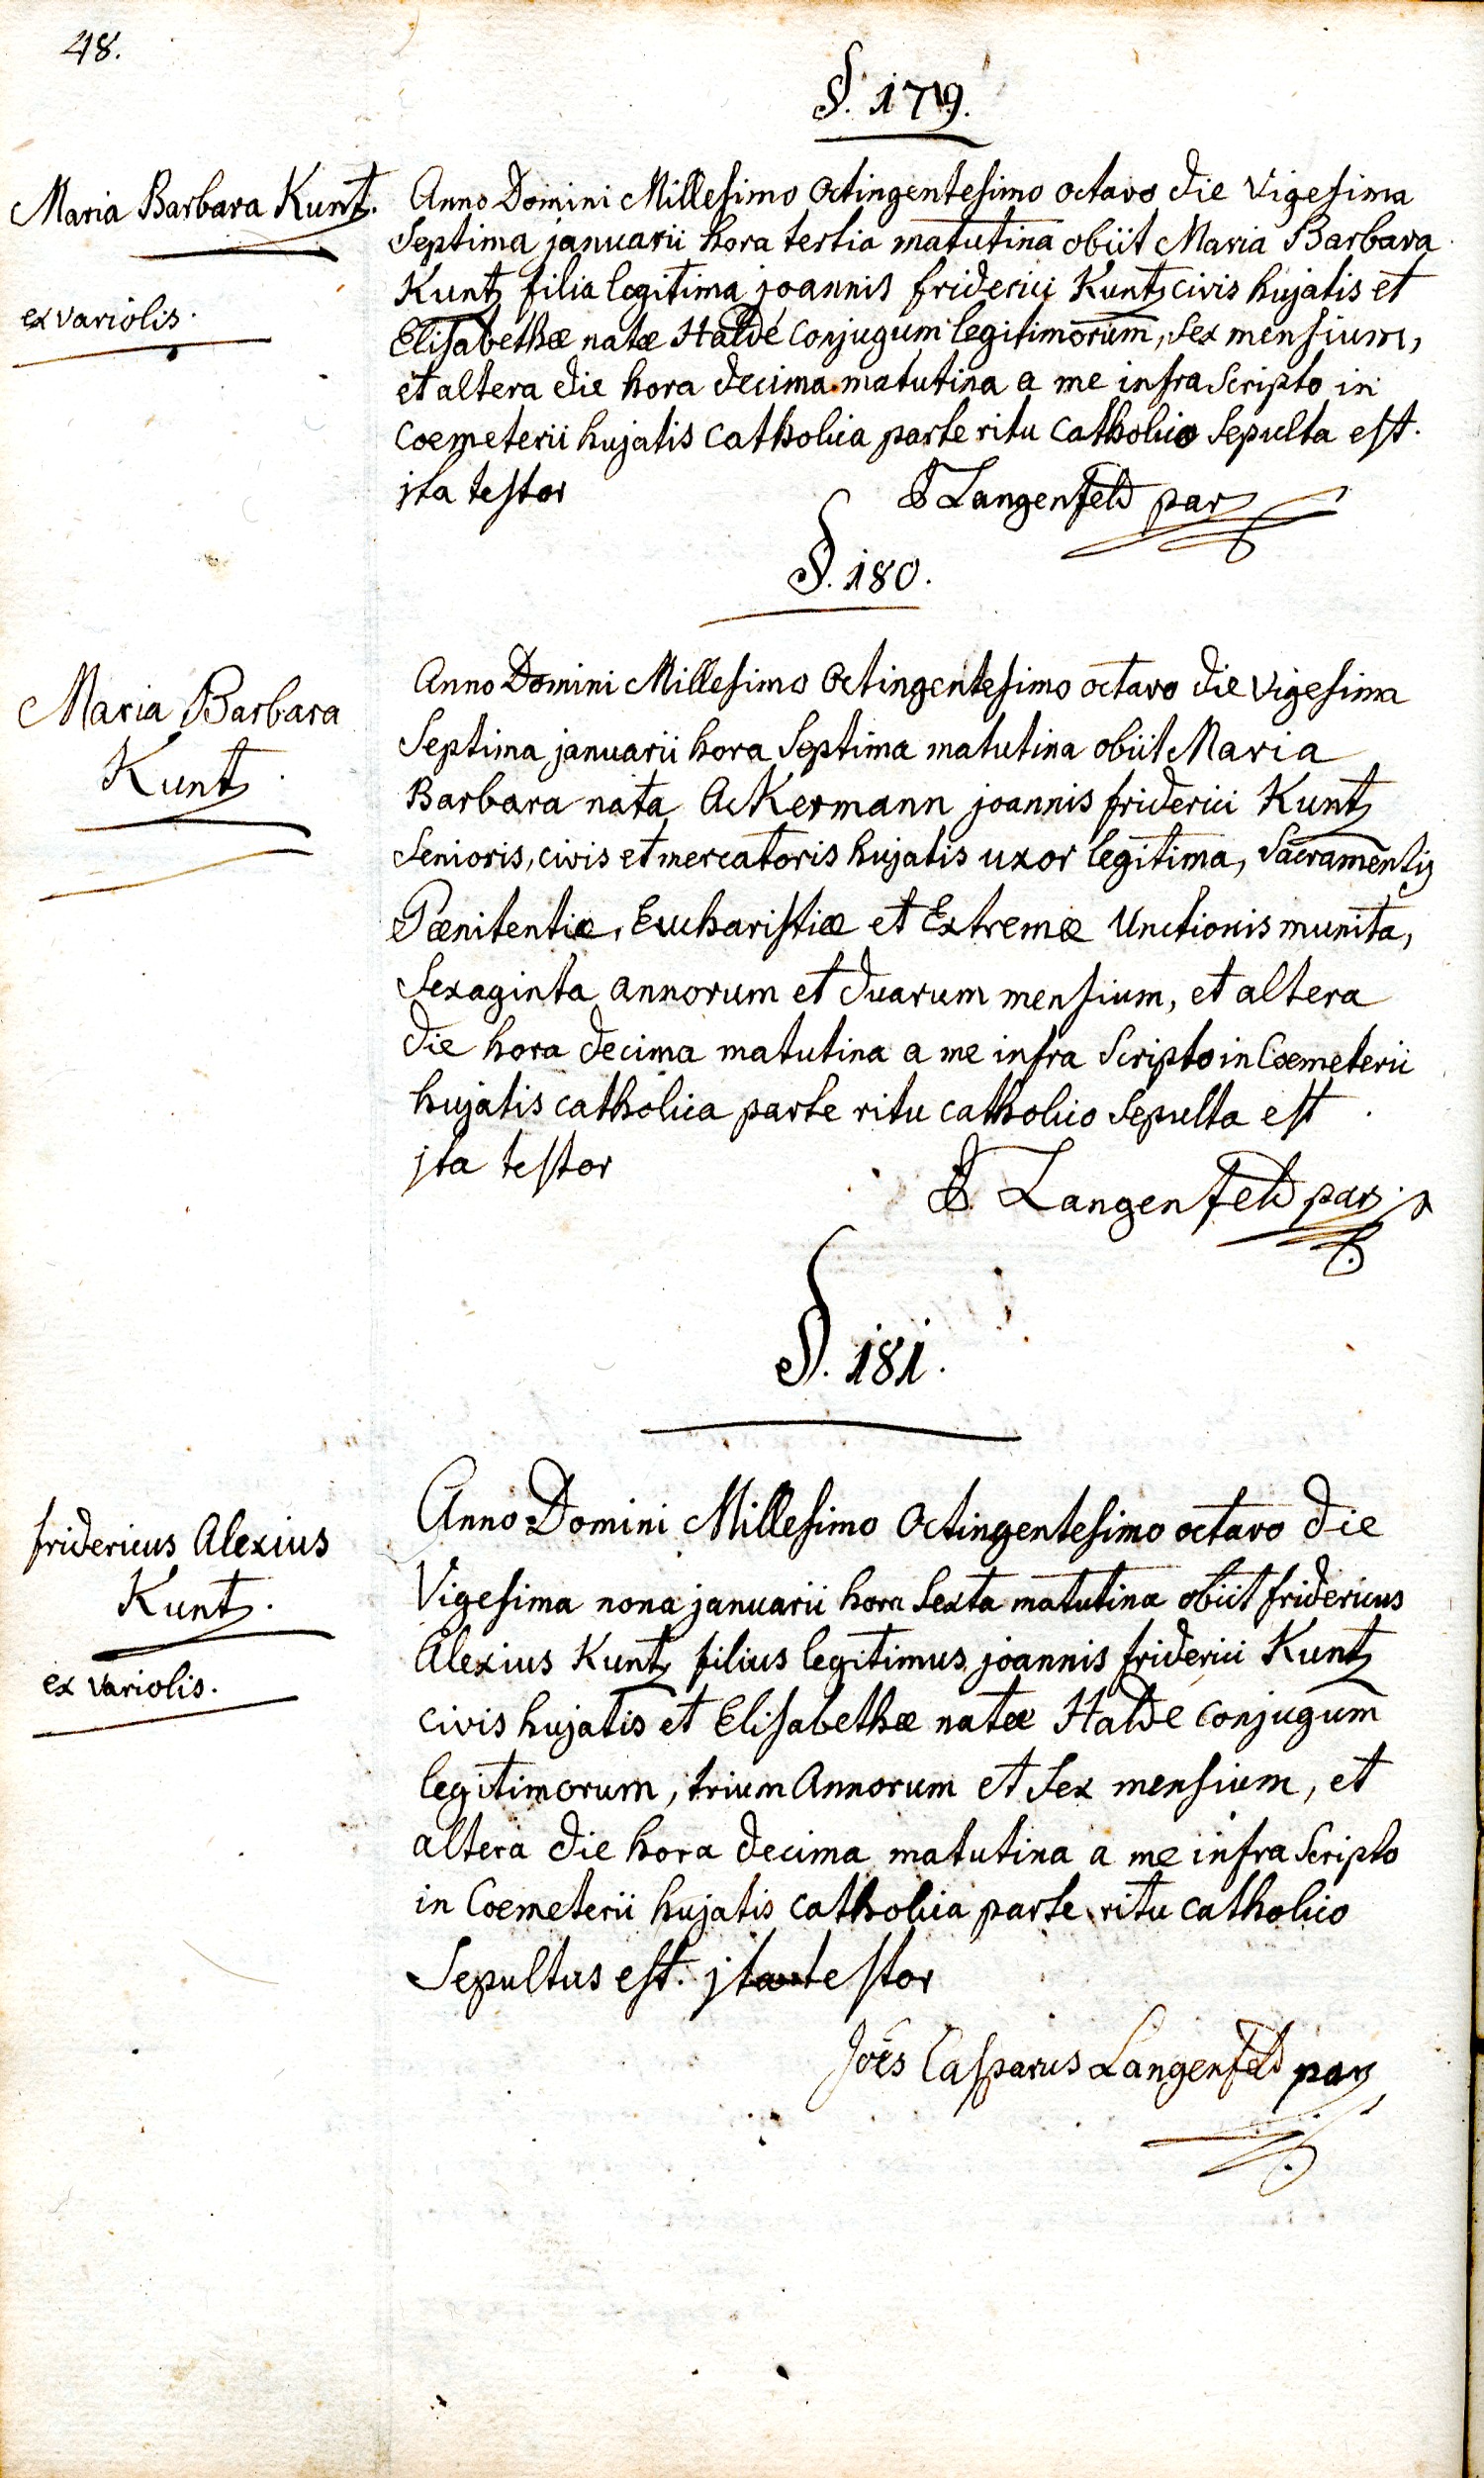 48.
§. 179.
Maria Barbara Kuntz.
ex variolis.
Anno Domini Millesimo Octingentesimo octavo die Vigesima
Septima januarii hora tertia matutina obiit Maria Barbara
Kuntz filia legitima joannis friderici Kuntz civis hujatis et
Elisabethæ natæ Haldé conjugum legitimorum, sex mensium,
et altera die hora decima matutina a me infra Scripto in
Coemeterii hujatis catholica parte ritu catholico Sepulta est.
jta testor
J Langenfeld par
§. 180.
Maria Barbara
Kuntz
Anno Domini Millesimo Octingentesimo octavo die vigesima
Septima januarii hora Septima matutina obiit Maria
Barbara nata Ackermann joannis friderici Kuntz
Senioris, civis et mercatoris hujatis uxor legitima, Sacramentis
Pœnitentiæ, Eucharistiæ et Extremæ Unctionis munita,
Sexaginta annorum et duarum mensium, et altera
die hora decima matutina a me infra Scripto in Coemeterii
hujatis catholica parte ritu catholico Sepulta est
jta testor
J. Langenfeld par
§. 181.
fridericus Alexius
Kuntz.
ex variolis.
Anno Domini Millesimo Octingentesimo octavo die
Vigesima nona januarii hora Sexta matutina obiit fridericus
Alexius Kuntz filius legitimus joannis friderici Kuntz
civis hujatis et Elisabethæ natæ Halde conjugum
legitimorum, trium Annorum et Sex mensium, et
altera die hora decima matutina a me infra Scripto
in Coemeterii hujatis catholica parte ritu catholico
Sepultus est. jta testor
Joës Casparus Langenfeld par